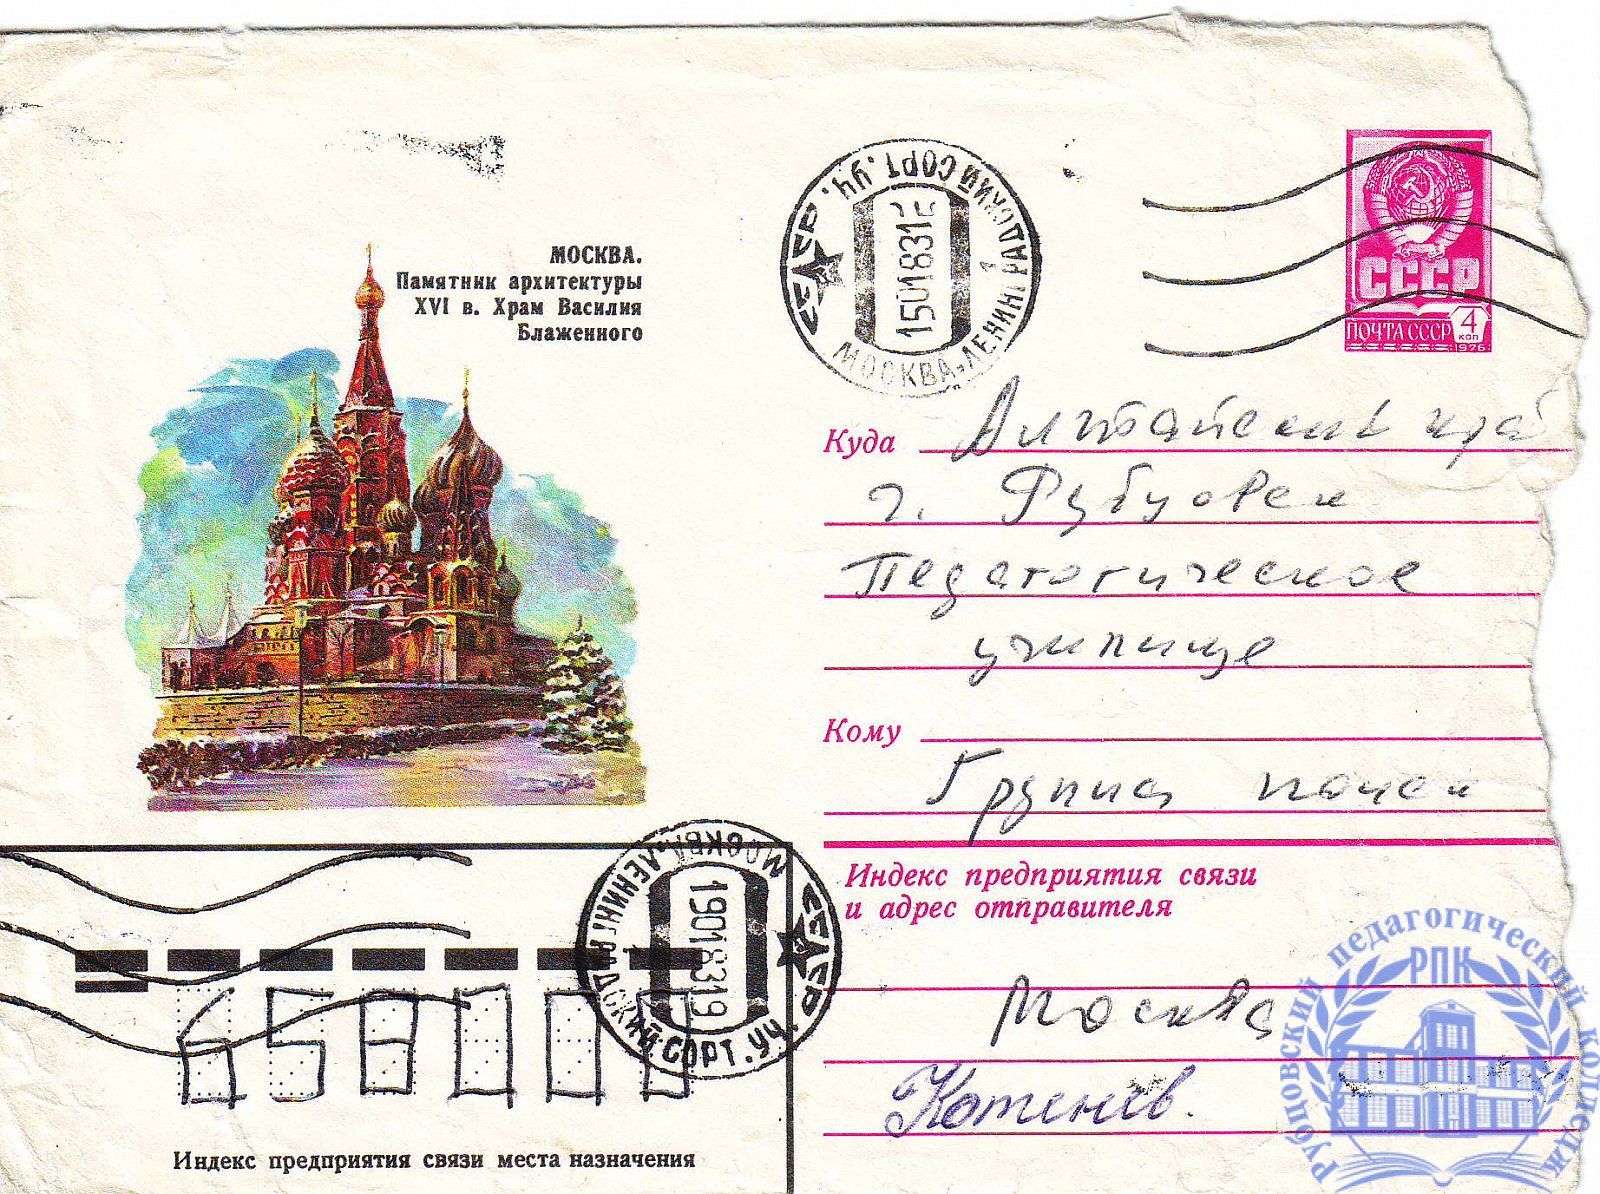 МОСКВА.
Памятник архитектуры
XVI в. Храм Василия
Блаженного
СССР
ПОЧТА СССР 4 коп
1976
СССР МОСКВА-ЛЕНИНГРАДСКИЙ СОРТ.УЧ.
15018315
Куда Алтайский край
г. Рубцовск
Педагогическое
училище
Кому
Группа поиск
Индекс предприятия связи
и адрес отправителя
Москва
Котенёв.
СССР МОСКВА-ЛЕНИНГРАДСКИЙ СОРТ.УЧ.
19018319
658000
Индекс предприятия связи места назначения
Рубцовский педагогический колледж
РПК